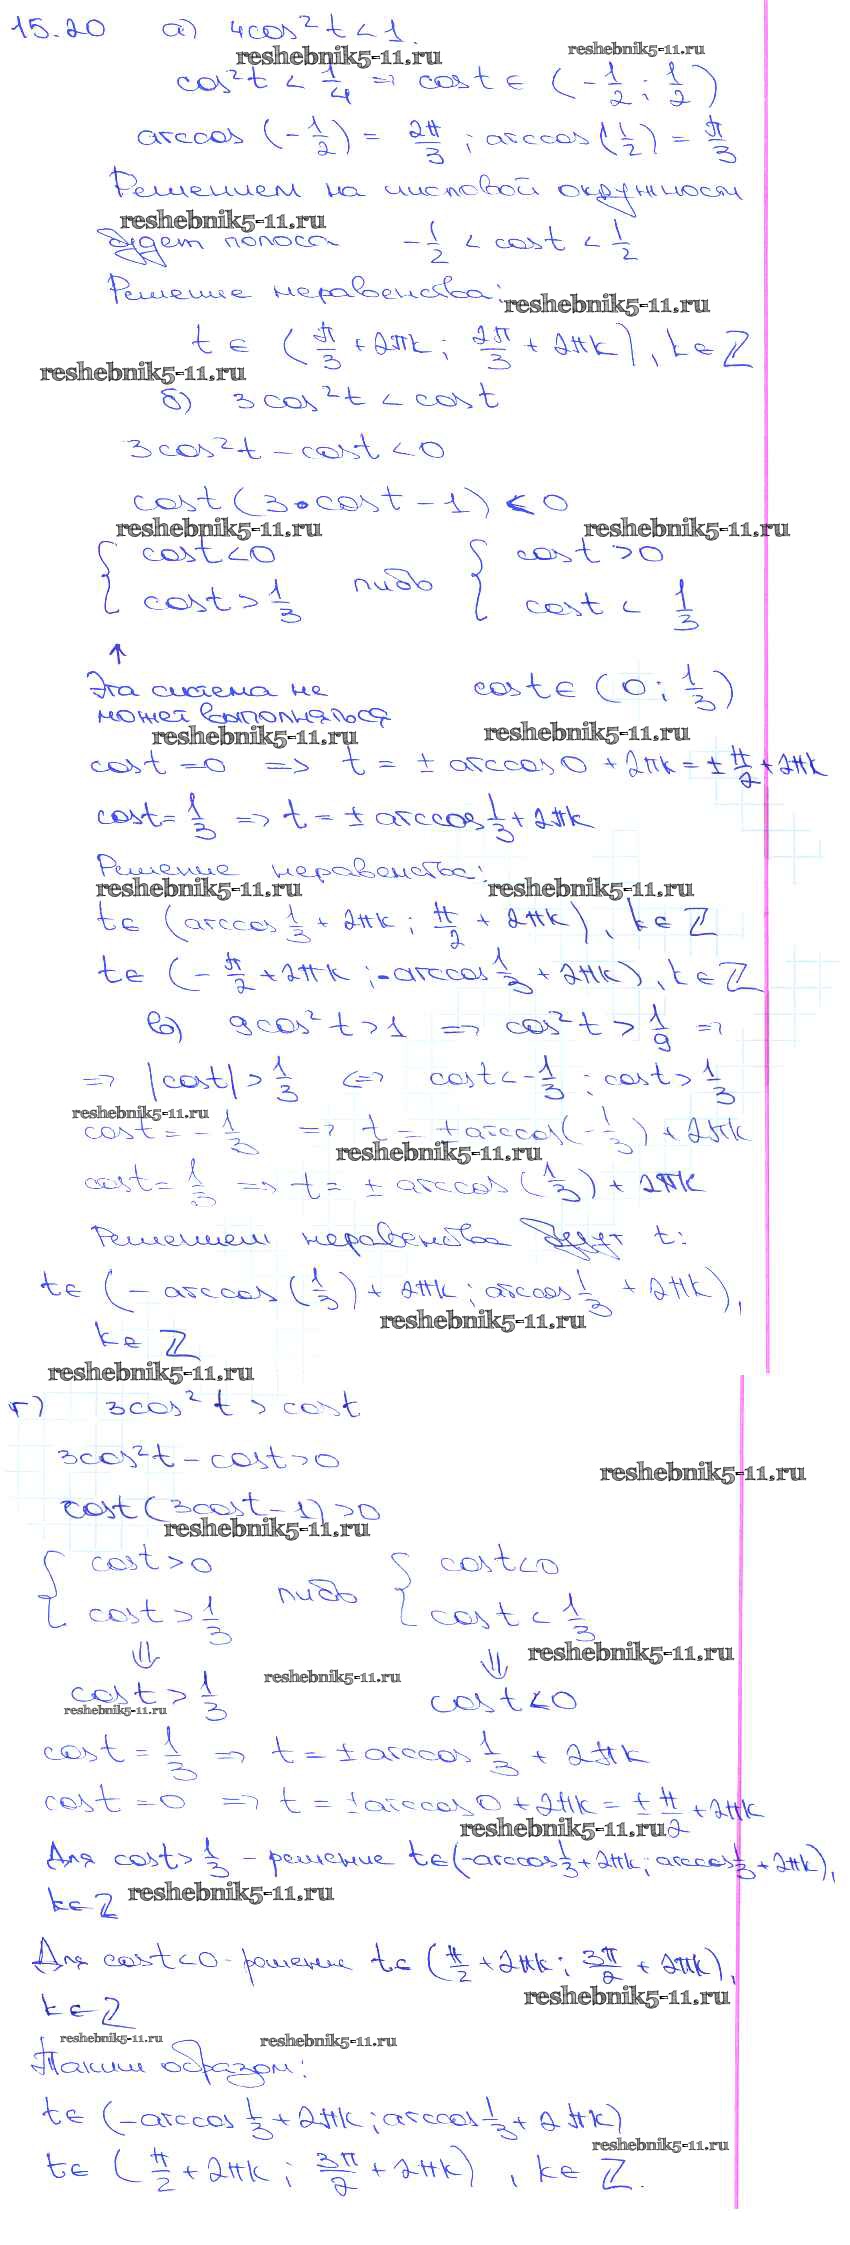 15.20 а) 4cos²t < 1.
reshebnik5-11.ru reshebnik5-11.ru
cos²t < 1/4 => cost ∈ (-1/2; 1/2)
arccos(-1/2) = 2π/3; arccos(1/2) = π/3
Решением на числовой окружности
reshebnik5-11.ru
будет полоса -1/2 < cost < 1/2
Решение неравенства:
reshebnik5-11.ru
t ∈ (π/3 + 2πk; 2π/3 + 2πk), k ∈ Z
reshebnik5-11.ru
б) 3cos²t < cost
3cos²t - cost < 0
cost(3·cost - 1) < 0
reshebnik5-11.ru reshebnik5-11.ru
{ cost < 0 либо { cost > 0
cost > 1/3 cost < 1/3
↑
Эта система не cost ∈ (0; 1/3)
может выполняться
reshebnik5-11.ru reshebnik5-11.ru
cost = 0 => t = ± arccos0 + 2πk = ± π/2 + 2πk
cost = 1/3 => t = ± arccos 1/3 + 2πk
Решение неравенства:
reshebnik5-11.ru reshebnik5-11.ru
t ∈ (arccos 1/3 + 2πk; π/2 + 2πk), k ∈ Z
t ∈ (-π/2 + 2πk; -arccos 1/3 + 2πk), k ∈ Z
в) 9cos²t > 1 => cos²t > 1/9 =>
=> |cost| > 1/3 <=> cost < -1/3; cost > 1/3
reshebnik5-11.ru
cost = -1/3 => t = ± arccos(-1/3) + 2πk
reshebnik5-11.ru
cost = 1/3 => t = ± arccos(1/3) + 2πk
Решением неравенства будут t:
t ∈ (-arccos(1/3) + 2πk; arccos 1/3 + 2πk),
reshebnik5-11.ru
k ∈ Z
reshebnik5-11.ru
г) 3cos²t > cost
3cos²t - cost > 0
reshebnik5-11.ru
cost(3cost - 1) > 0
reshebnik5-11.ru
{ cost > 0 либо { cost < 0
cost > 1/3 cost < 1/3
reshebnik5-11.ru
⇓ ⇓
reshebnik5-11.ru
cost > 1/3 cost < 0
reshebnik5-11.ru
cost = 1/3 => t = ± arccos 1/3 + 2πk
cost = 0 => t = ± arccos0 + 2πk = ± π/2 + 2πk
reshebnik5-11.ru
Для cost > 1/3 - решение t ∈ (-arccos 1/3 + 2πk; arccos 1/3 + 2πk),
k ∈ Z reshebnik5-11.ru
Для cost < 0 - решение t ∈ (π/2 + 2πk; 3π/2 + 2πk),
reshebnik5-11.ru
k ∈ Z
reshebnik5-11.ru reshebnik5-11.ru
Таким образом:
t ∈ (-arccos 1/3 + 2πk; arccos 1/3 + 2πk)
reshebnik5-11.ru
t ∈ (π/2 + 2πk; 3π/2 + 2πk), k ∈ Z.